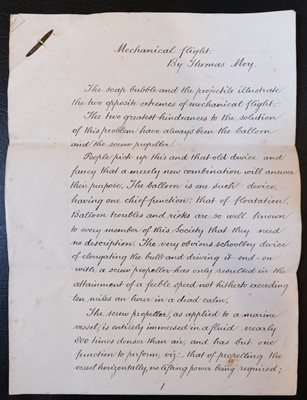 Mechanical flight.
By Thomas Moy.
The soap bubble and the projectile illustrate
the two opposite extremes of mechanical flight.
The two greatest hindrances to the solution
of this problem have always been the balloon
and the screw propeller.
People pick up this and that old device and
fancy that a merely new combination will answer
their purpose. The balloon is one such device,
having one chief function: that of floatation.
Balloon troubles and risks are so well known
to every member of this Society that they need
no description. The very obvious schoolboy device
of elongating the bulb and driving it end-on
with a screw propeller has only resulted in the
attainment of a feeble speed not hitherto exceeding
ten miles an hour in a dead calm.
The screw propeller, as applied to a marine
vessel, is entirely immersed in a fluid nearly
800 times denser than air, and has but one
function to perform, viz:- that of propelling the
vessel horizontally, no lifting power being required;
1